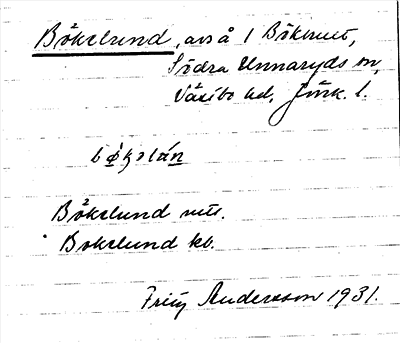 Bökelund, avs å 1 Bökhult,
Södra Unnaryds sn,
Västbo hd, Jönk. l.
bø̀kelán
Bökelund mtl.
Bökelund kb.
Fritz Andersson 1931.